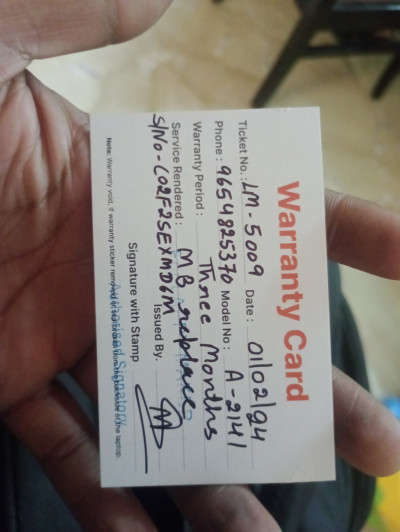 Warranty Card
Ticket No.: LM-5009 Date: 01/02/24
Phone: 9654825370 Model No: A-2141
Warranty Period: Three Months
Service Rendered: MB replace
S/No- C02F2SEXMD6M Issued By.
Signature with Stamp
Authorised Signatory
Note: Warranty void, if warranty sticker removed of the laptop.